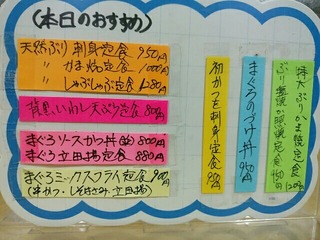 (本日のおすすめ)
天然ぶり刺身定食 950円
〃 かま焼定食 1000円
〃 しゃぶしゃぶ定食 1280円
背黒いわし天ぷら定食 800円
まぐろソースかつ丼 800円
まぐろ立田揚定食 880円
まぐろミックスフライ定食 900円
(串かつ・しそはさみ・立田揚)
初かつを刺身定食 950
まぐろのづけ丼 950
特大ぶりかま焼定食 1200
ぶり 定食 950